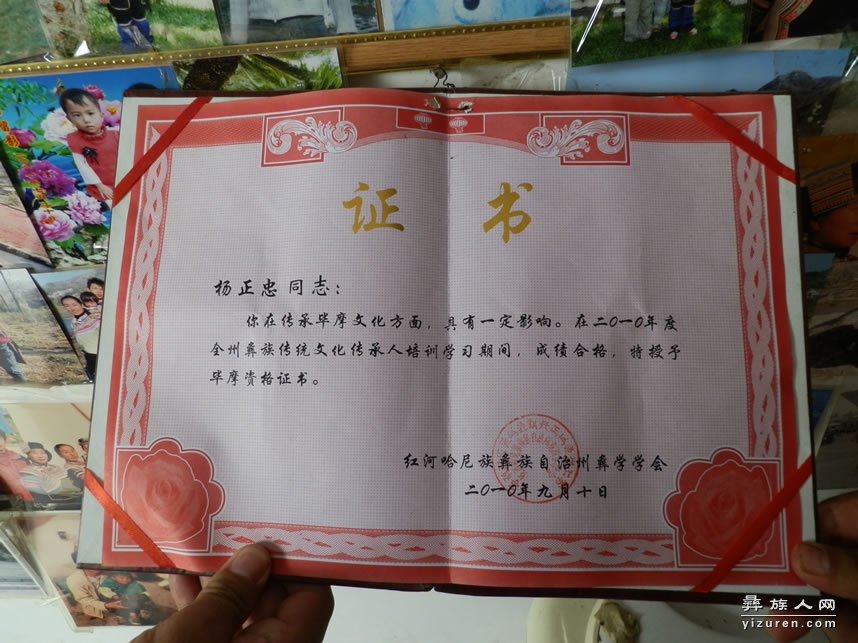 证书
杨正忠同志：
你在传承毕摩文化方面，具有一定影响。在二〇一〇年度
全州彝族传统文化传承人培训学习期间，成绩合格，特授予
毕摩资格证书。
红河哈尼族彝族自治州彝学学会
二〇一〇年九月十日
彝族人网
yizuren.com